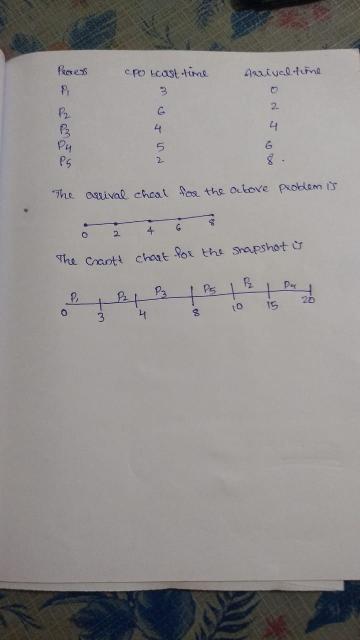 Process CPU bcast time Arrival time
P1 3 0
P2 6 2
P3 4 4
P4 5 6
P5 2 8.
The arrival chart for the above problem is
0 2 4 6 8
The Gantt chart for the snapshot is
P1 P2 P3 P5 P2 P4
0 3 4 8 10 15 20